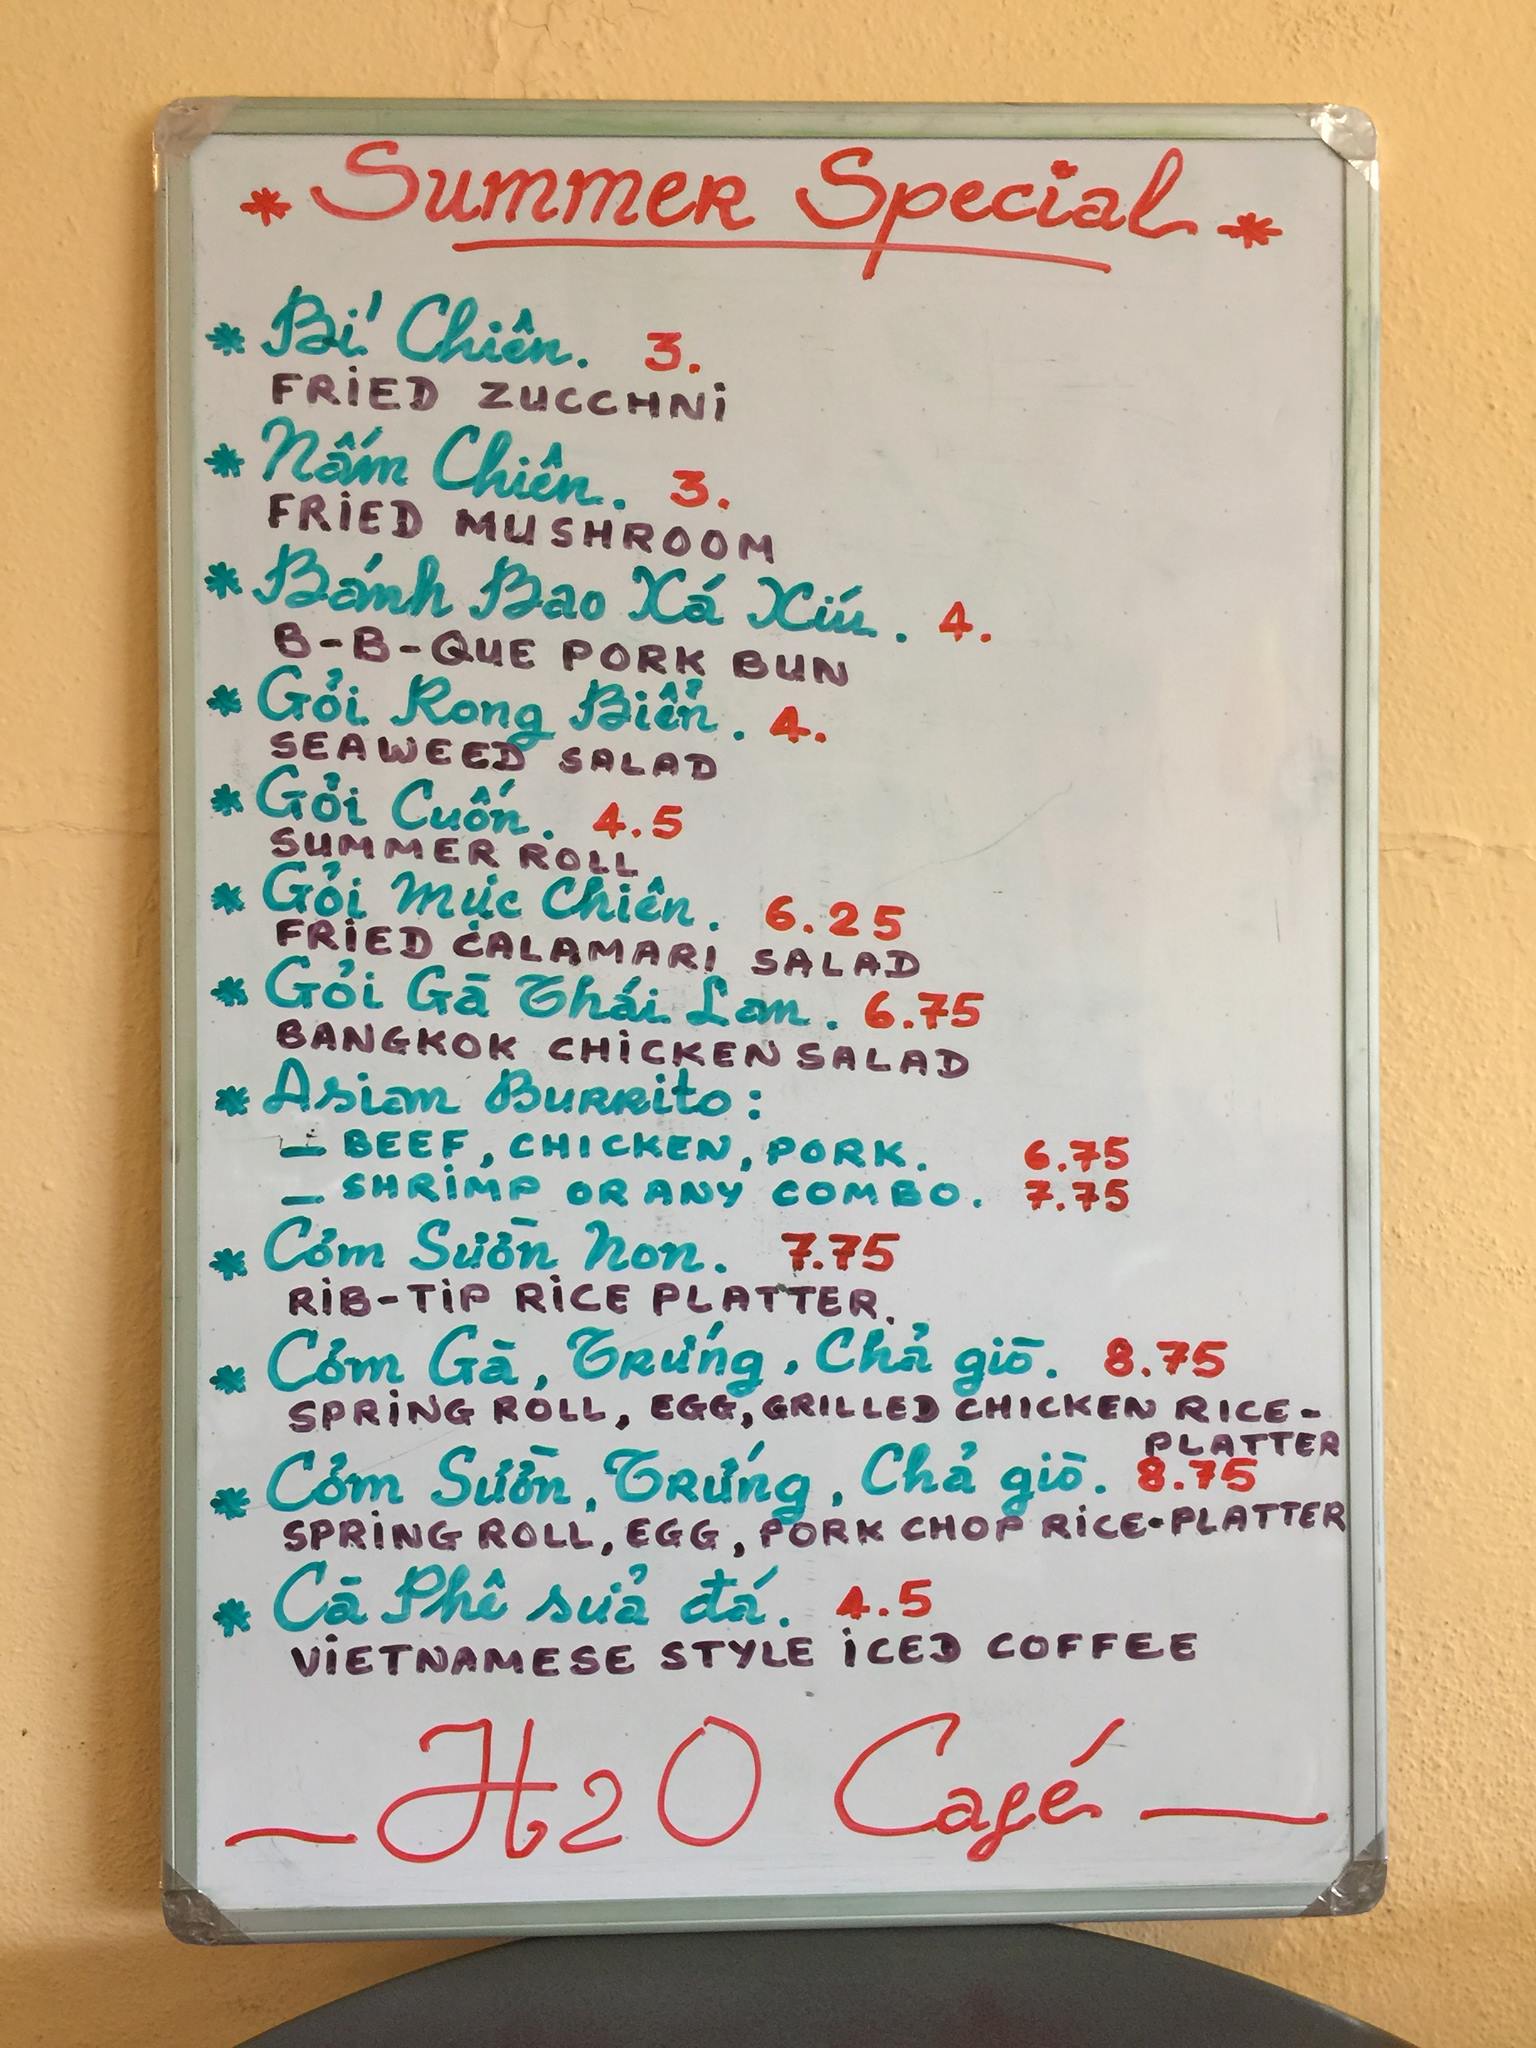 * Summer Special *
* Bí Chiên. 3.
FRIED ZUCCHNI
* Nấm Chiên. 3.
FRIED MUSHROOM
* Bánh Bao Xá Xíu. 4.
B-B-QUE PORK BUN
* Gỏi Rong Biển. 4.
SEAWEED SALAD
* Gỏi Cuốn. 4.5
SUMMER ROLL
* Gỏi Mực Chiên. 6.25
FRIED CALAMARI SALAD
* Gỏi Gà Thái Lan. 6.75
BANGKOK CHICKEN SALAD
* Asian Burrito:
- BEEF, CHICKEN, PORK. 6.75
- SHRIMP OR ANY COMBO. 7.75
* Cơm Sườn Non. 7.75
RIB-TIP RICE PLATTER.
* Cơm Gà, Trứng, Chả giò. 8.75
SPRING ROLL, EGG, GRILLED CHICKEN RICE-
PLATTER
* Cơm Sườn, Trứng, Chả giò. 8.75
SPRING ROLL, EGG, PORK CHOP RICE-PLATTER
* Cà Phê sửa đá. 4.5
VIETNAMESE STYLE ICED COFFEE
- H2O Café -